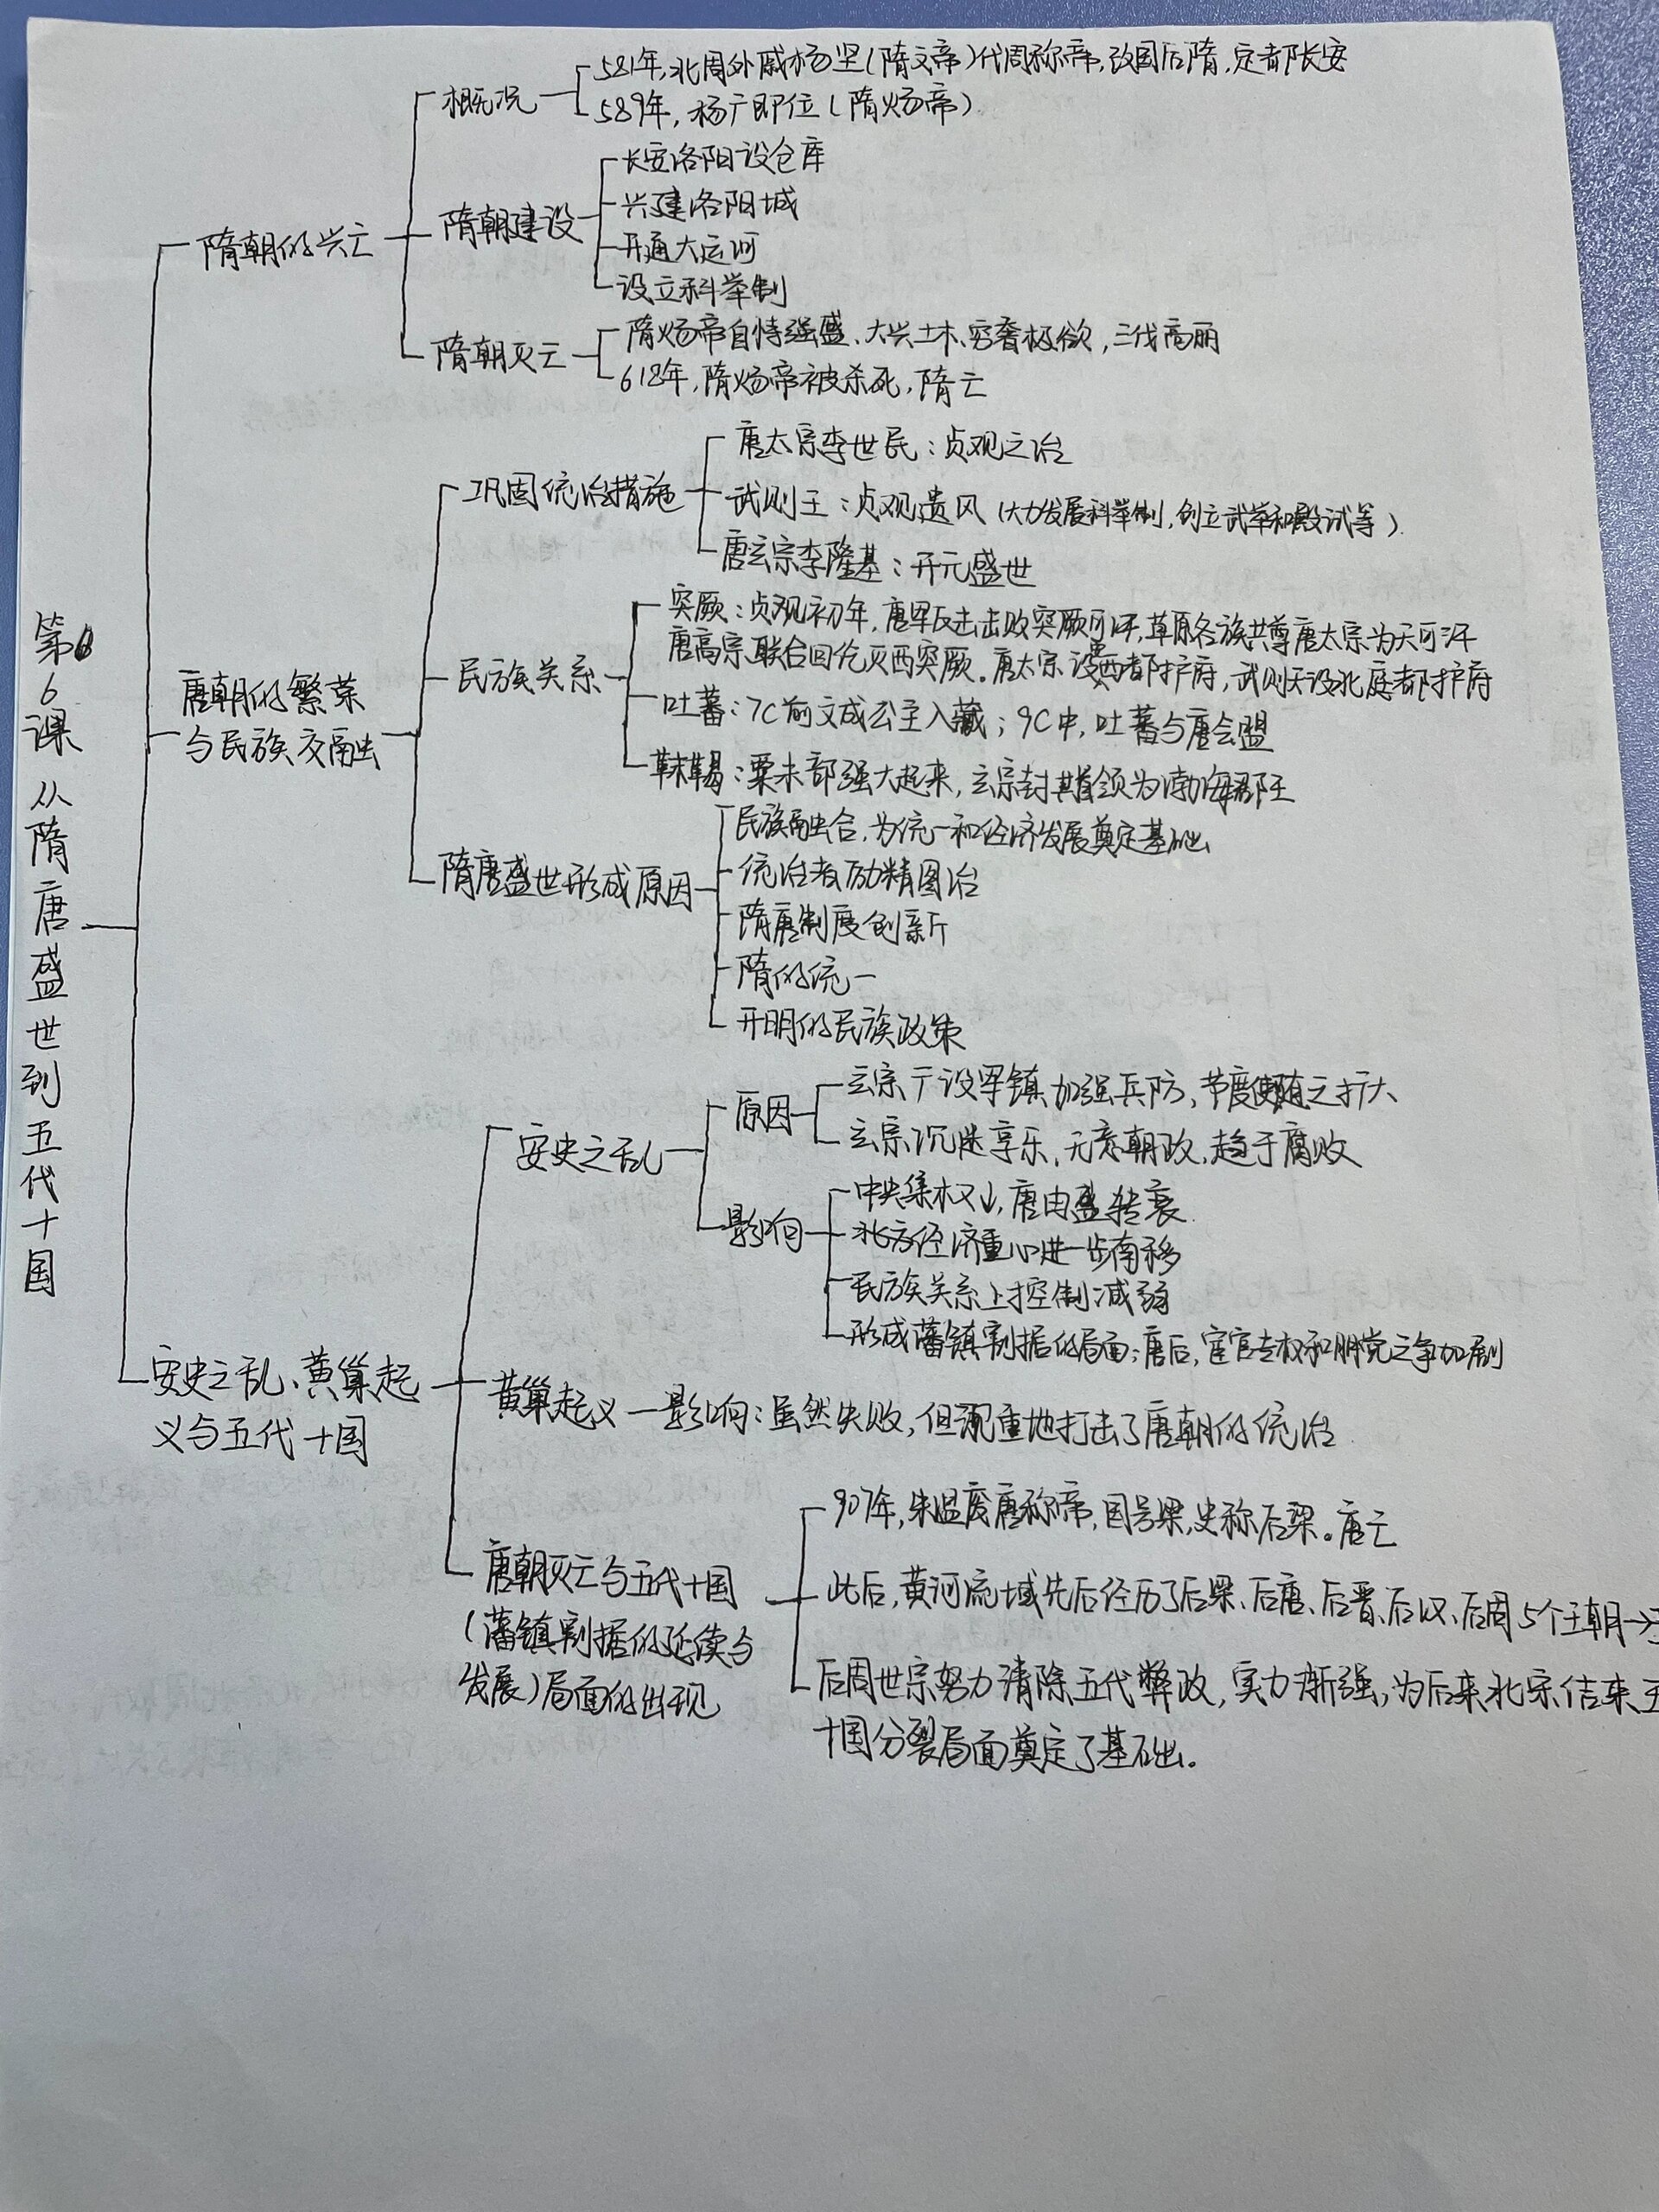 第6课 从隋唐盛世到五代十国
隋朝的兴亡
概况
581年,北周外戚杨坚(隋文帝)代周称帝,改国后隋,定都长安
589年,杨广即位(隋炀帝)
隋朝建设
长安洛阳设仓库
兴建洛阳城
开通大运河
设立科举制
隋朝灭亡
隋炀帝自恃强盛、大兴土木、穷奢极欲,三伐高丽
618年,隋炀帝被杀死,隋亡
唐朝的繁荣
与民族交融
巩固统治措施
唐太宗李世民:贞观之治
武则王:贞观遗风(大力发展科举制,创立武举和殿试等)
唐玄宗李隆基:开元盛世
民族关系
突厥:贞观初年,唐军反击击败突厥可汗,草原各族共尊唐太宗为天可汗
唐高宗联合回纥灭西突厥。唐太宗设西都护府,武则天设北庭都护府
吐蕃:7C前文成公主入藏;9C中,吐蕃与唐会盟
靺鞨:粟末部强大起来,玄宗封其首领为渤海郡王
隋唐盛世形成原因
民族融合,为统一和经济发展奠定基础
统治者励精图治
隋唐制度创新
隋的统一
开明的民族政策
安史之乱、黄巢起
义与五代十国
安史之乱
原因
玄宗广设军镇,加强兵防,节度使随之扩大
玄宗沉迷享乐,无意朝政,趋于腐败
影响
中央集权↓,唐由盛转衰
北方经济重心进一步南移
民族关系上控制减弱
形成藩镇割据的局面;唐后,宦官专权和朋党之争加剧
黄巢起义—影响:虽然失败,但沉重地打击了唐朝的统治
唐朝灭亡与五代十国
(藩镇割据的延续与
发展)局面的出现
907年,朱温废唐称帝,国号梁,史称后梁。唐亡
此后,黄河流域先后经历了后梁、后唐、后晋、后汉、后周5个王朝→
后周世宗努力清除五代弊政,实力渐强,为后来北宋结束五
十国分裂局面奠定了基础。